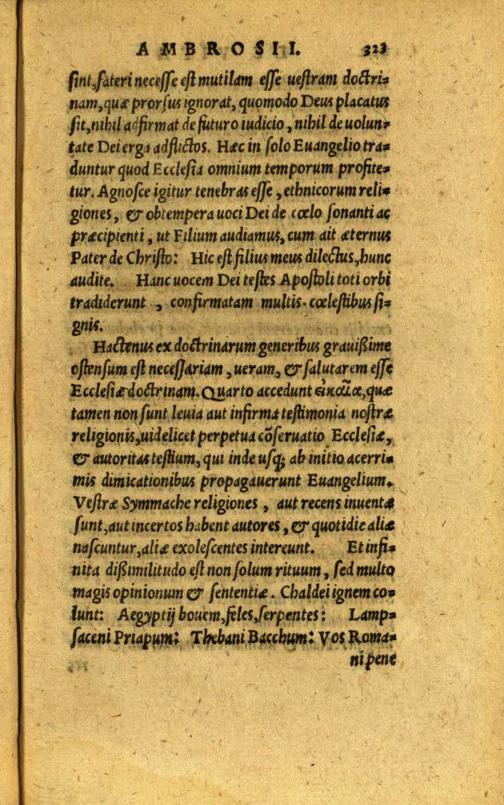 AMBROSII. 323
sint, fateri necesse est mutilam esse uestram doctri-
nam, quæ prorsus ignorat, quomodo Deus placatus
sit, nihil adfirmat de futuro iudicio, nihil de uolun-
tate Dei erga adflictos. Hæc in solo Euangelio tra-
duntur quod Ecclesia omnium temporum profite-
tur. Agnosce igitur tenebras esse, ethnicorum reli-
giones, & obtempera uoci Dei de cœlo sonanti ac
præcipienti, ut Filium audiamus, cum ait æternus
Pater de Christo: Hic est filius meus dilectus, hunc
audite. Hanc uocem Dei testes Apostoli toti orbi
tradiderunt, confirmatam multis cœlestibus si-
gnis.
Hactenus ex doctrinarum generibus grauißime
ostensum est necessariam, ueram, & salutarem esse
Ecclesiæ doctrinam. Quarto accedunt quæ
tamen non sunt leuia aut infirma testimonia nostræ
religionis, uidelicet perpetua cõseruatio Ecclesiæ,
& autoritas testium, qui inde usq; ab initio acerri-
mis dimicationibus propagauerunt Euangelium.
Vestræ Symmache religiones, aut recens inuentæ
sunt, aut incertos habent autores, & quotidie aliæ
nascuntur, aliæ exolescentes intereunt. Et infi-
nita dißimilitudo est non solum rituum, sed multo
magis opinionum & sententiæ. Chaldei ignem co-
lunt: Aegyptij bouem, feles, serpentes: Lamp-
saceni Priapum: Thebani Bacchum: Vos Roma-
ni pene